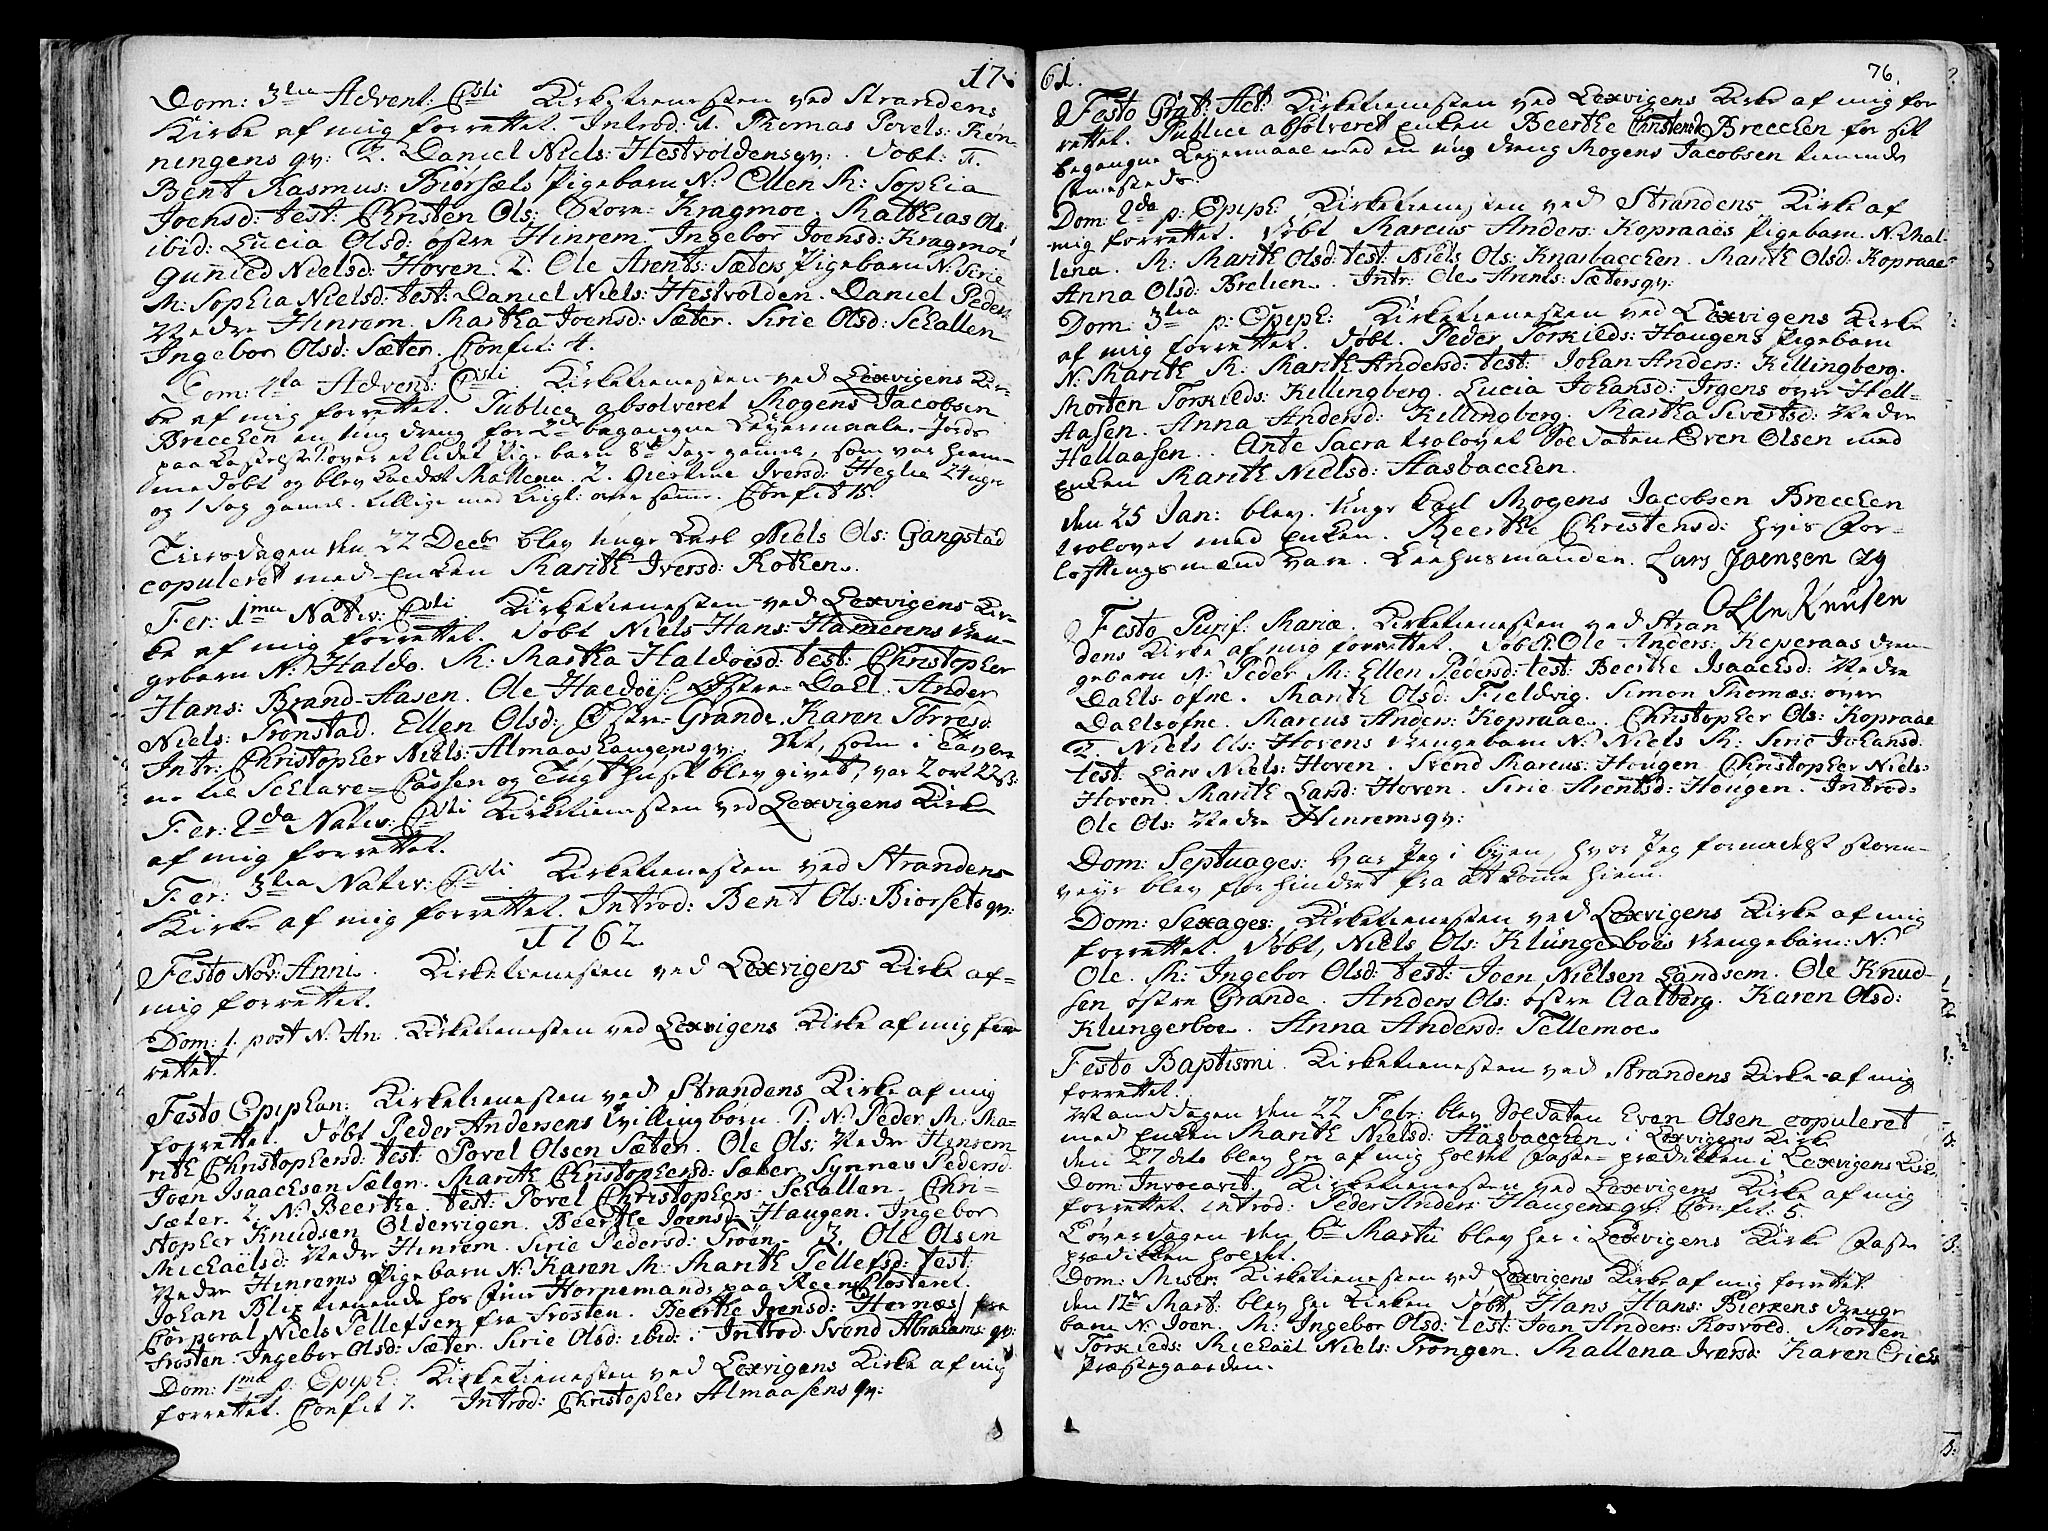 17
Dom: 3tia Advent: Christi Kirketienesten ved Strandens
Kirke af mig forrettet. Introd: 1. Thomas Povels: Røn-
ningens qv: 2. Daniel Niels: Hestvoldens qv: Døbt: 1.
Bent Rasmus: Biørsæts Pigebarn N: Ellen M: Sophia
Joensd: test: Christen Ols: Store-Kragmoe. Mathias Ols:
ibid: Lucia Olsd: østre Hinrem. Ingebor Joensd: Kragmoe
Gunild Nielsd: Hoven. 2. Ole Arents: Sæters Pigebarn N: Sirie
M: Sophia Nielsd: test: Daniel Niels: Hestvolden. Daniel Peders:
Nedre Hinrem. Martha Joensd: Sæter. Sirie Olsd: Schallen
Ingebor Olsd: Sæter. Confit: 4.
Dom: 4ta Advent: Christi Kirketienesten ved Lexvigens Kir-
ke af mig forrettet. Publice absolveret Mogens Jacobsen
Brecken en ung dreng for 2de begangne Leyermaale. Jords
paa kastelse over et lidet Pige barn 8te dage gammel, som var hiem-
medøbt og blev kaldet Mallena. 2. Giertrue Iversd: Heglie 24 uger
og 1 dag gammel. tillige med Liigt: over samme. Confit 15.
Tiirsdagen den 22 Decbr blev unge Karl Niels Ols: Gangstad
copuleret med Enken Marith Iversd: Rokken.
Fer: 1ma Nativ: Christi Kirketienesten ved Lexvigens Kir-
ke af mig forrettet. Døbt Niels Hans: Hammerens dren-
gebarn N: Haldo. M: Martha Haldoisd: test: Christopher
Hans: Brand-Aasen. Ole Haldois: Østre-Dahl. Ander
Niels: Tronstad. Ellen Olsd: Østre-Grande. Karen Torresd:
Intr: Christopher Niels: Almaashaugens qv: Det, som i Tavler-
ne til Sclave-Cassen og Tugthuset blev givet, var 2 ort 22 s:
Fer: 2da Nativ: Christi Kirketienesten ved Lexvigens Kirke
af mig forrettet.
Fer: 3tia Nativ: Christi Kirketienesten ved Strandens
Kirke af mig forrettet. Introd: Bent Ols: Biorsets qv:
1762
Festo Nov: Anni. Kirketienesten ved Lexvigens Kirke af
mig forrettet.
Dom: 1. post N: An. Kirketienesten ved Lexvigens Kirke af mig for-
rettet.
Festo Epiphan: Kirketienesten ved Strandens Kirke af mig
forrettet. Døbt Peder Andersens tvillingbørn. 1. N: Peder M: Ma-
rith Christophersd: test: Povel Olsen Sæter. Ole Ols: Nedre Hinrem
Joen Isaachsen Sælen. Marith Christophersd: Sæter. Synnas Pedersd:
Sæter. 2. N: Beerthe. test: Povel Christophers: Schallen. Chri-
stopher Knudsen Oldervigen. Beerthe Joensd: Haugen. Ingebor
Michaëlsd: Nedre Hinrem. Sirie Pedersd: Trøen. 3. Ole Olsen
Nedre Hinrems Pigebarn N: Karen M: Marith Tellefsd: test:
Johan Blix tienende hos Hornemands paa Reens Closteret.
Corporal Niels Tellefsen fra Frosten. Beerthe Joensd: Hernæs fra
Frosten. Ingebor Olsd: Sæter. Sirie Olsd: ibid: Introd: Svend Abrahams: qv:
Dom: 1ma p: Epiph: Kirketienesten ved Lexvigens Kirke af mig
forrettet. Confit 7. Introd: Christopher Almaasens qv:
61.
76.
Festo Grat: Act: Kirketienesten ved Lexvigens Kirke af mig for
rettet. Publice absolveret Enken Beerthe Christensd: Brecken for sit
begangne Leyermaal med en ung dreng Mogens Jacobsen tienende
sammesteds.
Dom: 2da p: Epiph: Kirketienesten ved Strandens Kirke af
mig forrettet. Døbt Marcus Anders: Kopraaes Pigebarn. N: Mal-
lena. M: Marith Olsd: test: Niels Ols: Knarbacken. Marith Olsd: Kopraae
Anna Olsd: Brelien. Intr: Ole Arents: Sæters qv:
Dom: 3tia p: Epiph: Kirketienesten ved Lexvigens Kirke
af mig forrettet. Døbt. Peder Torkilds: Haugens Pigebarn
N: Marith M: Marith Andersd: test: Johan Anders: Killingberg.
Morten Torkilds: Killingberg. Lucia Johansd: Irgens over Hell-
Aasen. Anna Andersd: Killingberg. Martha Sivertsd: Nedre
Hellaasen. Ante Sacra trolovet Soldaten Even Olsen med
Enken Marith Nielsd: Aasbacken.
den 25 Jan: blev unge Karl Mogens Jacobsen Brecken
trolovet med Enken. Beerthe Christensd: hvis For-
loftningsmænd vare. Leehnsmanden. Lars Joensen og
Olle Knudsen
Festo Purif: Mariæ. Kirketienesten ved Stran
dens Kirke af mig forrettet. Døbt 1. Ole Anders: Keperaas dren-
gebarn N: Peder M: Ellen Pedersd: test: Beerthe Isaachsd: Nedre
Daelsøfne. Marith Olsd: Fieldvig. Simon Thomæs: over
Daelsøfne. Marcus Anders: Kopraae. Christopher Ols: Kopraae
2. Niels Ols: Hovens drengebarn N: Niels M: Sirie Johansd:
test: Lars Niels: Hoven. Svend Marcus: Hougen. Christopher Niels:
Hoven. Marith Larsd: Hoven. Sirie Arentsd: Hougen. Introd:
Ole Ols: Nedre Hinrems qv:
Dom: Septuages: Var jeg i byen, hvor jeg formedelst storm-
veyr blev forhindret fra at komme hiem.
Dom: Sexages: Kirketienesten ved Lexvigens Kirke af mig
forrettet. Døbt, Niels Ols: Klungerboes drengebarn: N:
Ole. M: Ingebor Olsd: test: Joen Nielsen Landsem. Ole Knud-
sen østre Grande. Anders Ols: østre Aalberg. Karen Olsd:
Klungerboe. Anna Andersd: Tellemoe.
Festo Baptismi. Kirketienesten ved Strandens Kirke af mig
forrettet.
Mandagen den 22 Febr: blev Soldaten Even Olsen copuleret
med Enken Marith Nielsd: Aasbacken. i Lexvigens Kirke
den 27 dito blev her af mig holdet Faste-prædikken i Lexvigens Kirk
Dom: Invocavit. Kirketienesten ved Lexvigens Kirke af mig
forrettet. introd: Peder Anders: Haugens qv: Confit: 5.
Løverdagen den 6te Martii blev her i Lexvigens Kirke Faste
prædikken holdet.
Dom: Miser: Kirketienesten ved Lexvigens Kirke af mig forrettet.
den 17de Mart: blev her i Kirken døbt Hans Hans: Bierxens drenge
barn N: Joen. M: Ingebor Olsd: test: Joen Anders: Rosvold. Morten
Torkilds: Michaël Niels: Trongen. Mallena Iversd: Karen Erichs
Præstegaarden.